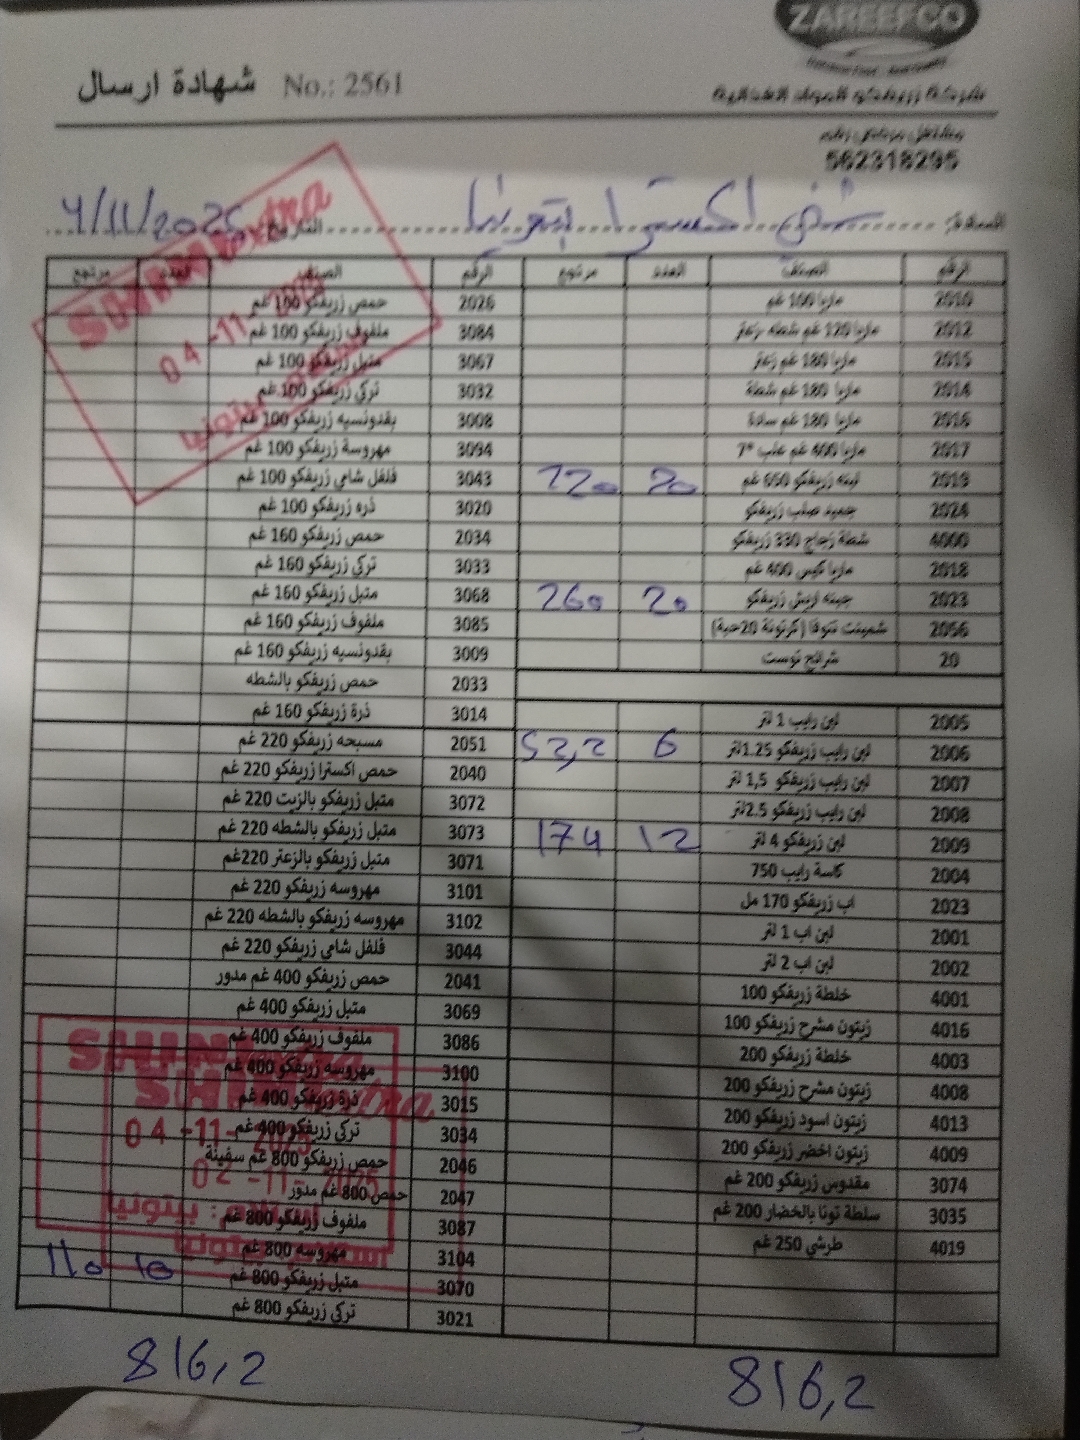 ZAREEFCO
شركة زريفكو للمواد الغذائية
شهادة ارسال No.: 2561
مشتغل مرخص رقم
562318295
التاريخ 4/11/2025
الرقم الصنف العدد مرتجع الرقم الصنف العدد مرتجع
2010 ماريا 100 غم 2026 حمص زريفكو 100 غم
2012 3084 ملفوف زريفكو 100 غم
2015 ماريا 180 غم زعتر 3067 متبل زريفكو 100 غم
2014 ماريا 180 غم شطة 3032 تركي زريفكو 100 غم
2016 ماريا 180 غم سادة 3008 بقدونسيه زريفكو 100 غم
2017 ماريا 400 غم علب 3094 مهروسة زريفكو 100 غم
2019 لبنه زريفكو 650 غم 20 220 3043 فلفل شامي زريفكو 100 غم
2024 جميد صلب زريفكو 3020 ذره زريفكو 100 غم
4000 شطة زجاج 330 زريفكو 2034 حمص زريفكو 160 غم
2018 ماريا كيس 400 غم 3033 تركي زريفكو 160 غم
2023 جبنه زريفكو 20 260 3068 متبل زريفكو 160 غم
2056 شمينت تنوفا (كرتونة 20حبة) 3085 ملفوف زريفكو 160 غم
20 شرائح توست 3009 بقدونسيه زريفكو 160 غم
2033 حمص زريفكو بالشطه
2005 لبن رايب 1 لتر 3014 ذرة زريفكو 160 غم
2006 لبن رايب زريفكو 1.25لتر 6 52,2 2051 مسبحه زريفكو 220 غم
2007 لبن رايب زريفكو 1,5 لتر 2040 حمص اكسترا زريفكو 220 غم
2008 لبن رايب زريفكو 2.5لتر 3072 متبل زريفكو بالزيت 220 غم
2009 لبن زريفكو 4 لتر 12 174 3073 متبل زريفكو بالشطه 220 غم
2004 كاسة رايب 750 3071 متبل زريفكو بالزعتر 220غم
2023 اب زريفكو 170 مل 3101 مهروسه زريفكو 220 غم
2001 لبن اب 1 لتر 3102 مهروسه زريفكو بالشطه 220 غم
2002 لبن اب 2 لتر 3044 فلفل شامي زريفكو 220 غم
4001 خلطة زريفكو 100 2041 حمص زريفكو 400 غم مدور
4016 زيتون مشرح زريفكو 100 3069 متبل زريفكو 400 غم
4003 خلطة زريفكو 200 3086 ملفوف زريفكو 400 غم
4008 زيتون مشرح زريفكو 200 3100 مهروسه زريفكو 400 غم
4013 زيتون اسود زريفكو 200 3015 ذرة زريفكو 400 غم
4009 زيتون اخضر زريفكو 200 3034 تركي زريفكو 400 غم
3074 مقدوس زريفكو 200 غم 2046 حمص زريفكو 800 غم سفينة
3035 سلطة تونا بالخضار 200 غم 2047 حمص 800 غم مدور
4019 طرشي 250 غم 3087 ملفوف زريفكو 800 غم
3104 مهروسه 800 غم
3070 متبل زريفكو 800 غم 10 110
3021 تركي زريفكو 800 غم
816,2 816,2
SHINI extra
04-11-2025
بيتونيا
SHINI extra
04-11-2025
02-11-2025
استلام: بيتونيا